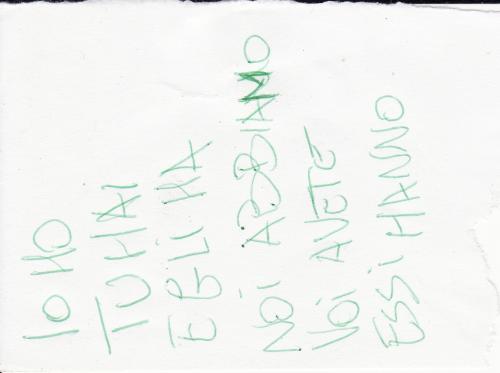 IO HO
TU HAI
EGLI HA
NOI ABBIAMO
VOI AVETE
ESSI HANNO